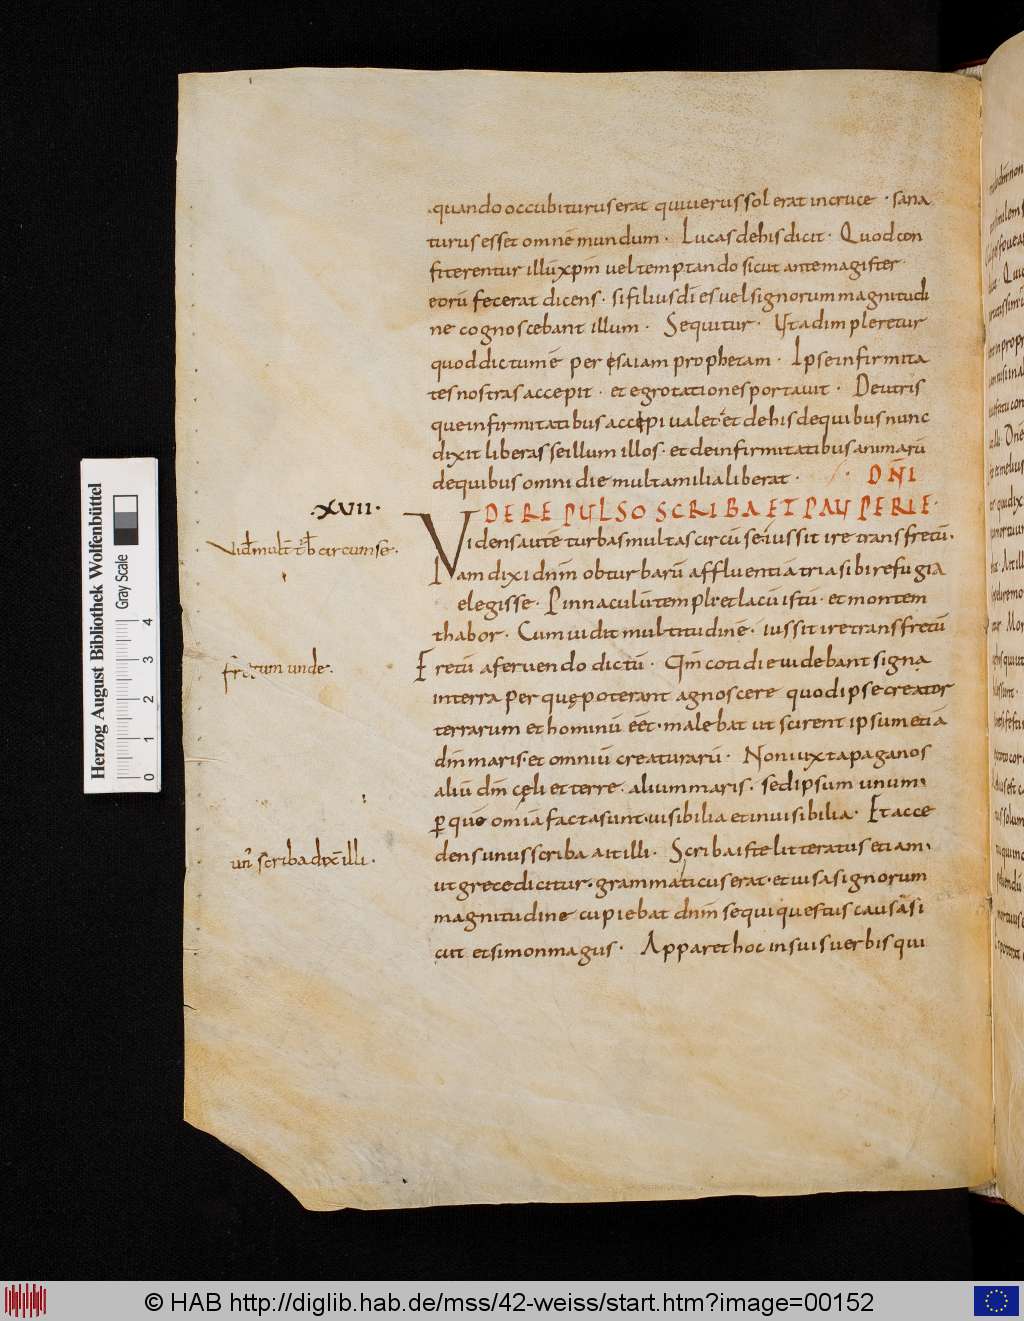 quando occubiturus erat qui uerus sol erat in cruce · sana
turus esset omnē mundum · Lucas de his dicit · Quod con
fiterentur illū xpm̄ uel temptando sicut ante magister
eorū fecerat dicens · si filius dī es uel signorum magnitudi
ne cognoscebant illum · Sequitur · Ut adimpleretur
quod dictum ē per esaiam prophetam · Ipse infirmita
tes nostras accepit · et egrotationes portauit · De utris
que infirmitatibus accipi ualet · et de his de quibus nunc
dixit liberasse illum illos · et de infirmitatibus animarū
de quibus omni die multa milia liberat · DN̄I
DE REPULSO SCRIBA ET PAUPERIE ·
·XVII·
Videns autē turbas multas circū se · iussit ire trans fretū ·
Vid̄ mult̄ tb̄ circum se ·
Nam dixi dnm̄ ob turbarū affluentiā tria sibi refugia
elegisse · Pinnaculū templi et lacū istū · et montem
thabor · Cum uidit multitudinē · iussit ire trans fretū
Fretū a feruendo dictū · Qm̄ cotidie uidebant signa
fretum unde ·
in terra per quę poterant agnoscere quod ipse creator
terrarum et hominū eēt · malebat ut scirent ipsum etiā
dnm̄ maris · et omniū creaturarū · Non iuxta paganos
aliū dm̄ cęli et terre · alium maris · sed ipsum unum ·
per quē omīa facta sunt · uisibilia et inuisibilia · Et acce
dens unus scriba ait illi · Scriba iste litteratus etiam ·
un̄ scriba dix̄ illi ·
ut grece dicitur · grammaticus erat · et uisa signorum
magnitudine cupiebat dnm̄ sequi questus causā si
cut et simon magus · Apparet hoc in suis uerbis qui
Herzog August Bibliothek Wolfenbüttel
Gray Scale
0 1 2 3 4
© HAB http://diglib.hab.de/mss/42-weiss/start.htm?image=00152